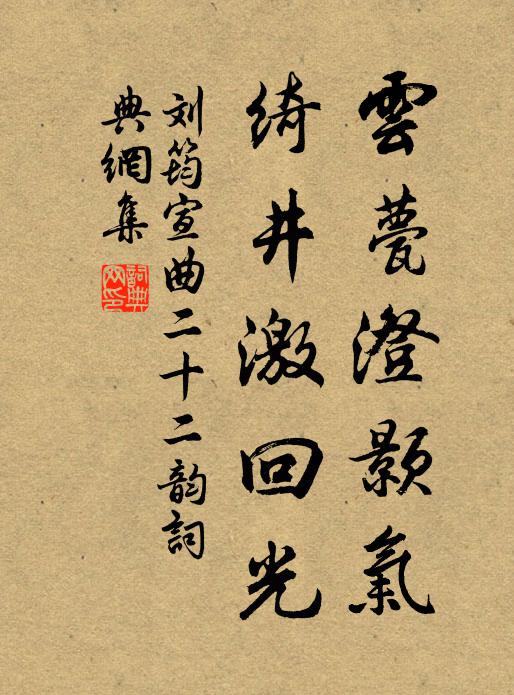 雲薨澄顥氣
綺井激回光
刘筠宣曲二十二韵詞
典網集
詞典網印